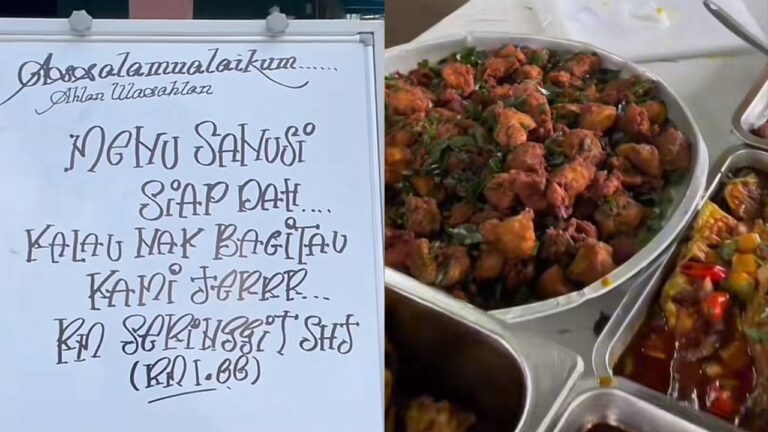 Assalamualaikum......
Ahlan Wasahlan
MENU SANUSI
SIAP DAH....
KALAU NAK BAGITAU
KAMI JERRR...
RM SERINGGIT SHJ
(RM 1.00)